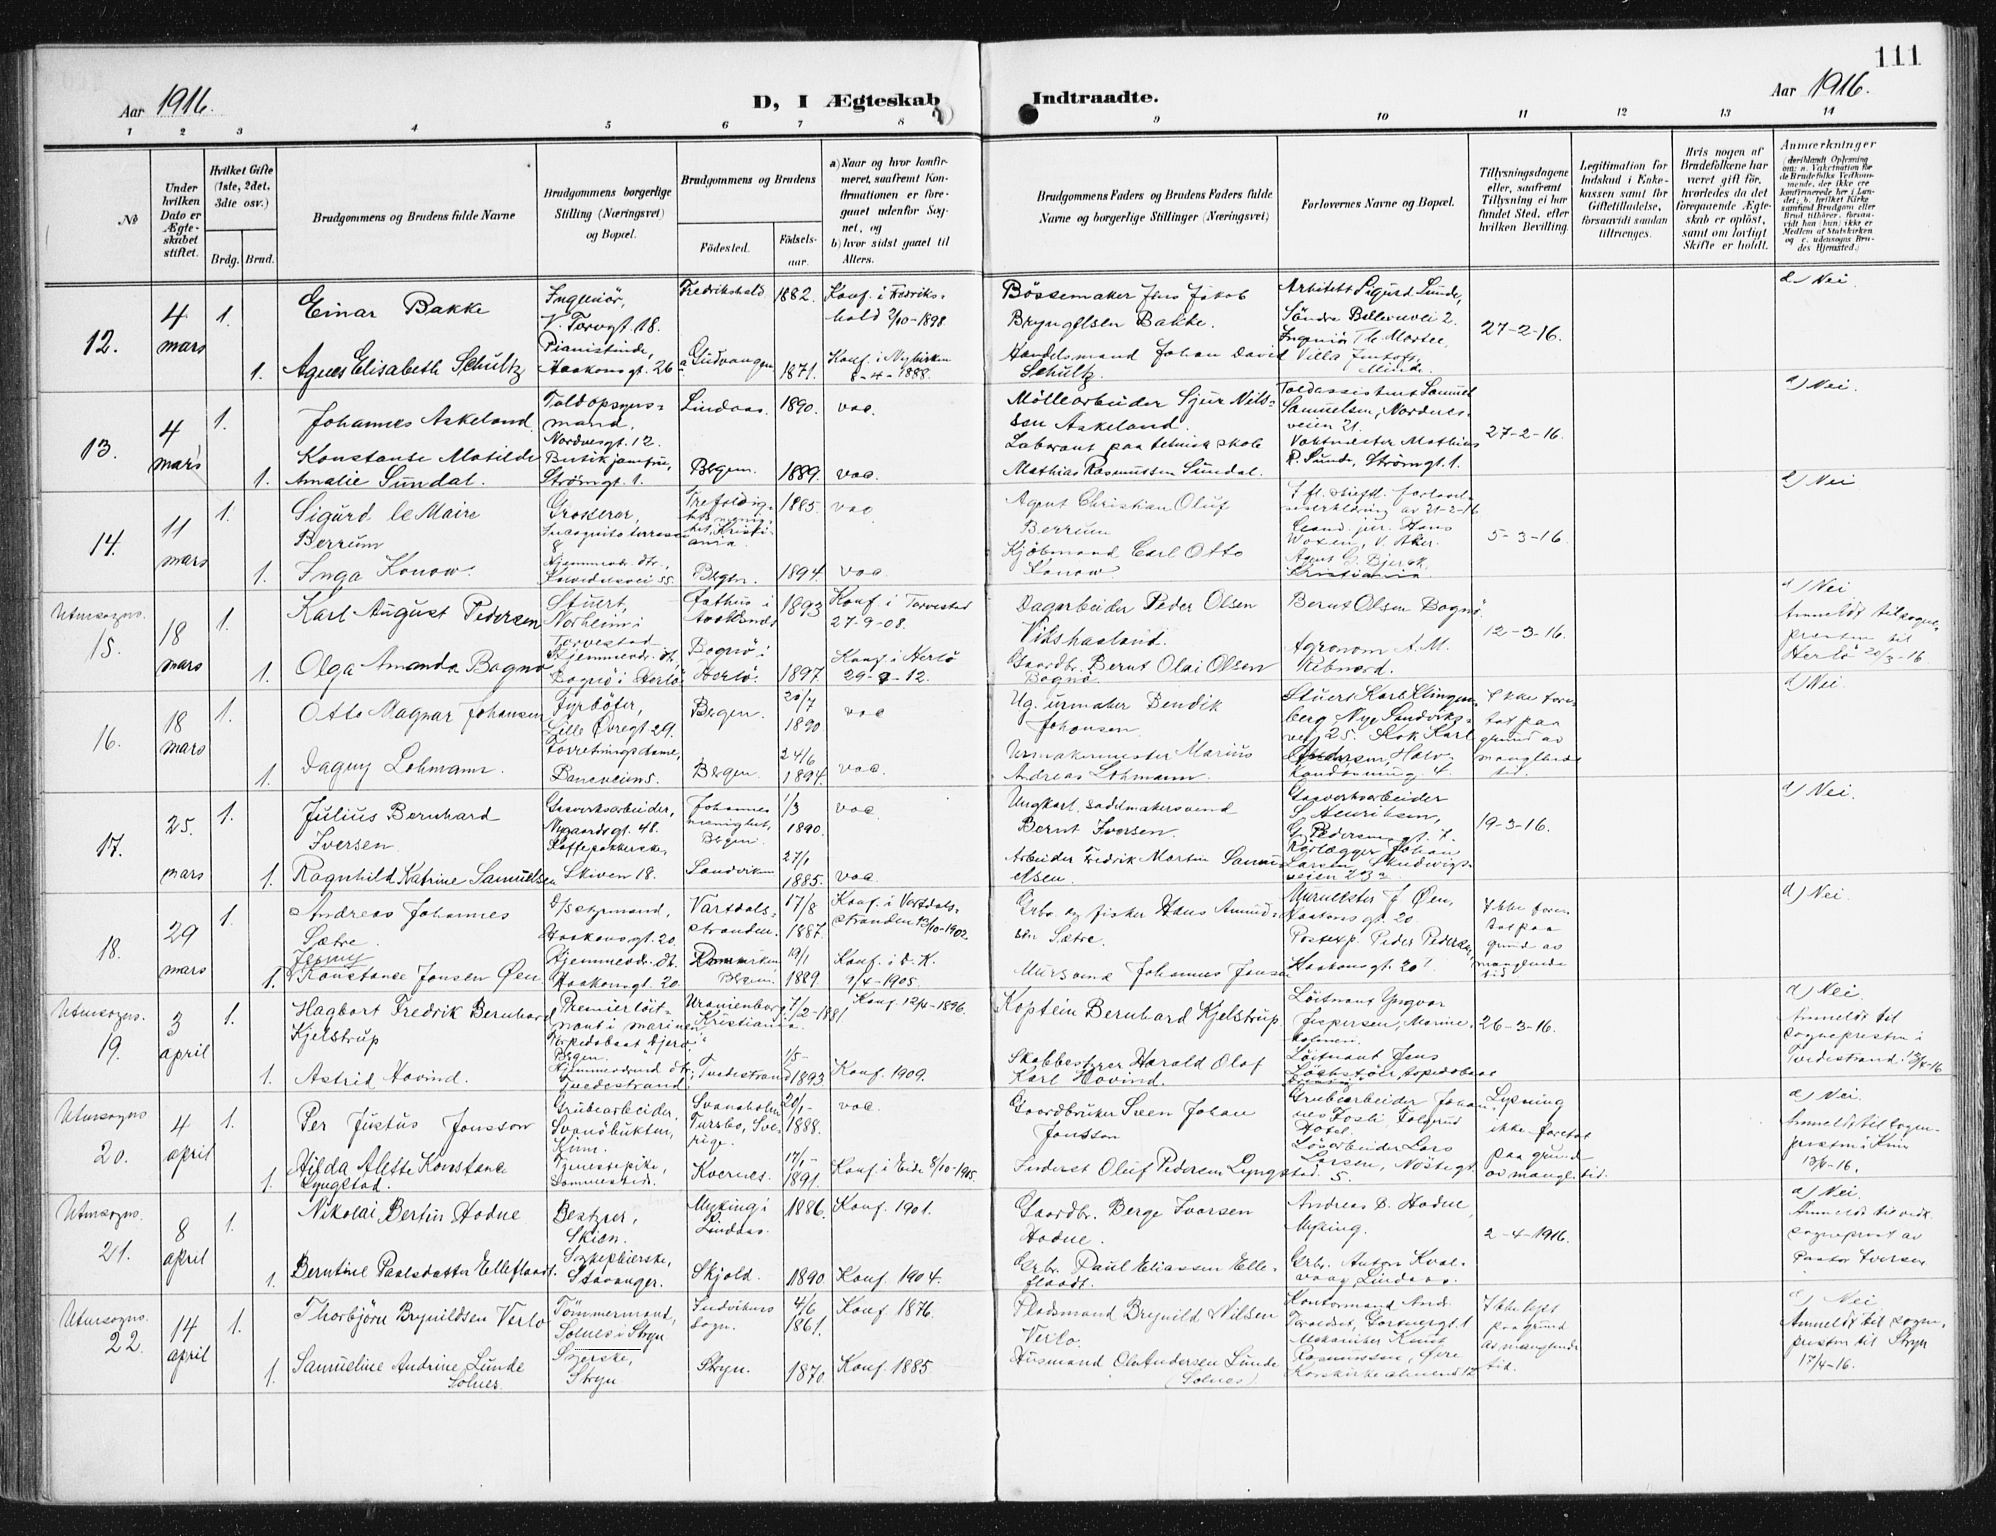 111
Aar 1916.
D, I Ægteskab Indtraadte.
Aar 1916.
1 2 3 4 5 6 7 8 9 10 11 12 13 14
No
Under hvilken Dato er Ægteskabet stiftet.
Hvilket Gifte (1ste, 2det, 3die osv.)
Brdg. Brud.
Brudgommens og Brudens fulde Navne
Brudgommens borgerlige Stilling (Næringsvei) og Bopæl.
Brudgommens og Brudens
Födested.
Födsels-aar.
a) Naar og hvor konfirmeret, saafremt Konfirmationen er foregaaet udenfor Sognet, og
b) hvor sidst gaaet til Alters.
Brudgommens Faders og Brudens Faders fulde Navne og borgerlige Stillinger (Næringsvei)
Forlovernes Navne og Bopæl.
Tillysningsdagene eller, saafremt Tillysning ei har fundet Sted, efter hvilken Bevilling.
Legitimation for Indskud i Enkekassen samt for Giftetilladelse, forsaavidt saadan tiltrænges.
Hvis nogen af Brudefolkene har været gift för, hvorledes da det foregaaende Ægteskab er oplöst, samt om lovligt Skifte er holdt.
Anmærkninger
12.
4 mars
1.
Einar Bakke
Ingeniör,
V. Torvgt 18.
Fredrikshald
1882.
Konf. i Fredriks-
hald 2/10-1898.
Bössemaker Jens Jakob
Bryngelsen Bakke.
Arkitekt Sigurd Lunde,
Söndre Bellevuevei 2.
27-2-16.
a) Nei.
1.
Agnes Elisabeth Schultz
Pianistinde,
Haakonsgt. 26
Gudvangen
1871.
Konf. i Nykirken
8-4-1888.
Handelsmand Johan David
Schultz.
13.
4 mars
1.
Johannes Askeland.
Toldopsyns-
mand,
Nordnesgt. 12.
Lindaas.
1890.
vac.
Möllearbeider Sjur Nils-
sen Askeland.
Toldassistent Samuel
Samuelsen, Nordnes-
veien 21.
27-2-16.
a) Nei.
1.
Konstanse Matilde
Amalie Sundal.
Butikjomfru,
Strömgt. 1.
Bergen.
1889.
vac.
Laborant paa teknisk skole
Mathias Rasmussen Sundal.
Vaktmester Mathias
R. Sunde, Strömgt. 1.
14.
11 mars
1.
Sigurd le Maire
Berrum
Grosserer,
Incognitoterrasse
8
Trefoldig-
hets menig-
het, Kristi-
ania.
1885.
vac
Agent Christian Oluf
Berrum
5-3-16.
a) Nei
1.
Inga Konow.
Hjemmev. dtr.,
Bergen.
1894.
vac.
Kjöbmand Carl Otto
Konow.
Kristiania
Utensogns.
15.
18 mars
1.
Karl August Pedersen
Stuert,
Norheim i
Torvestad
1893
Konf. i Torvestad
27-9-08.
Dagarbeider Peder Olsen
Bernt Olsen Bognö
12-3-16.
a) Nei
Anmeldt til sogne-
presten til
Herlö 20/3-16
1.
Olga Amanda Bognö
Hjemmev. dtr.
Bognö i Herlö.
Bognö i
Herlö.
1897.
Konf. i Herlö
29-9-12.
Gaardbr. Bernt Olai Olsen
Bognö
Agronom A. M.
16.
18 mars
1.
Otto Magnar Johansen
Fyrböter,
Lille Övregt 29.
Bergen.
20/7
1890
vac
Ug. urmaker Bendik
Johansen.
Stuert Karl Klingen-
berg, Nye Sandviks-
vei 25. Kok Karl
Ikke fore-
tat paa
grund av
manglende
tid.
a) Nei.
1.
Dagny Lohmann.
Forretningsdame,
Bergen.
24/6
1894.
vac.
Urmakermester Marius
Andreas Lohmann.
17.
25. mars
1.
Julius Bernhard
Iversen.
Gasverksarbeider,
Nygaardsgt. 48.
Johannes
menighet,
Bergen.
1/3
1890.
vac
Ungkarl. sadelmakersvend
Bernt Iversen.
Gasverksarbeider
S. Henriksen,
19-3-16.
a) Nei.
1.
Ragnhild Katrine Samuelsen
Kaffepakkerske,
Skiven 18.
Sandviken
27/1
1885.
vac.
Arbeider Fredrik Martin Samu-
elsen.
Rörlægger Johan
Larsen, Skudevigs-
veien 23a
18.
29 mars
1.
Andreas Johannes
Sætre.
D/Sstyrmand,
Haakonsgt. 20.
Vartdals-
stranden.
17/8
1887.
Konf. i Vartdals-
stranden 13/10-1902.
Grbr. og fisker Hans Amund-
sen Sætre.
Murmester J. Öen,
Haakonsgt. 20.
Ikke fore-
tat paa
grund av
manglende
tid
a) Nei.
1.
Jenny
Konstanse Jonsen Öen
Hjemmev. dt.
Haakonsgt. 20.
Bergen.
19/1
1889
Konf. i D. K.
9/4-1905.
Mursvend Johannes Jonsen
Postexp. Peder Pedersen,
Haakonsgt. 20.
Utensogns.
19.
3 april
1.
Hagbart Fredrik Bernhard
Kjelstrup
Premierlöit-
nant i marinen
Torpedobaat Djerv
Bergen.
Uranienborg,
Kristiania.
7/2-1881
Konf. 12/4-1896.
Kaptein Bernhard Kjelstrup
Löitnant Yngvar
Jespersen, Marine-
holmen.
26-3-16.
a) Nei.
Anmeldt til
sognepresten i
Tvedestrand.
1.
Astrid Hovind.
Hjemmeværende dtr,
Tvedestrand
Tvedestrand
1/5-
1893
Konf. 1909.
Skabbestyrer Harald Olaf
Karl Hovind.
Löitnant Jens
Utensogns
20.
4 april
1.
Per Justus Jonsson
Grubearbeider,
Svanöbukten,
Kinn.
Svansholm
Tursbo, Sve-
rige.
20/1-
1888.
vac.
Gaardbruker Sven Johan
Jonsson
Grubearbeider Johan-
nes Fosli,
Hotel.
Lysning
ikke foretat
paa grund
av mangl. tid.
a) Nei.
Anmeldt til sogne-
presten i Kinn
13/4-16.
1.
Hilda Alette Konstanse
Lyngstad.
Tjenestepike,
Kvernes.
17/1-
1891.
Konf. i Eide 8/10-1905.
Inderst Oluf Pedersen Lyngstad.
Lösarbeider Lars
Larsen, Nöstegt.
5.
Utensogns.
21.
8 april
1.
Nikolai Bertin Hodne
Bestyrer,
Skien.
Myking i
Lindaas.
1886.
Konf. 1901.
Gaardbr. Berge Iversen
Hodne.
Andreas B. Hodne,
Myking.
2-4-1916.
a) Nei.
Anmeldt til vedk.
sogneprest av
Pastor Iversen
1.
Berntine Paalsdatter Elleflaadt.
Sykepleierske,
Stavanger.
Skjold.
1890
Konf. 1904.
Grbr. Paul Eliassen Elle-
flaadt.
Grbr. Anton Kval-
vaag, Lindaas.
Utensogns.
22.
14 april
1.
Thorbjörn Brynildsen Verlo
Tömmermand,
Solnes i Stryn
Indvikens
sogn.
4/6
1861.
Konf. 1876.
Pladsmand Brynild Nilsen
Verlo.
Kontormand Andr.
Ikke lyst
paa grund
av manglende
tid.
a) Nei
Anmeldt til sogne-
presten til Stryn
17/4-16.
1.
Samueline Andrine Lunde
Solnes.
Syerske,
Stryn
Stryn.
1870.
Konf. 1885.
Husmand Ole Andersen Lunde
(Solnes)
Mekaniker Knut
Rasmussen, Övre
Korskirkealmend. 12.